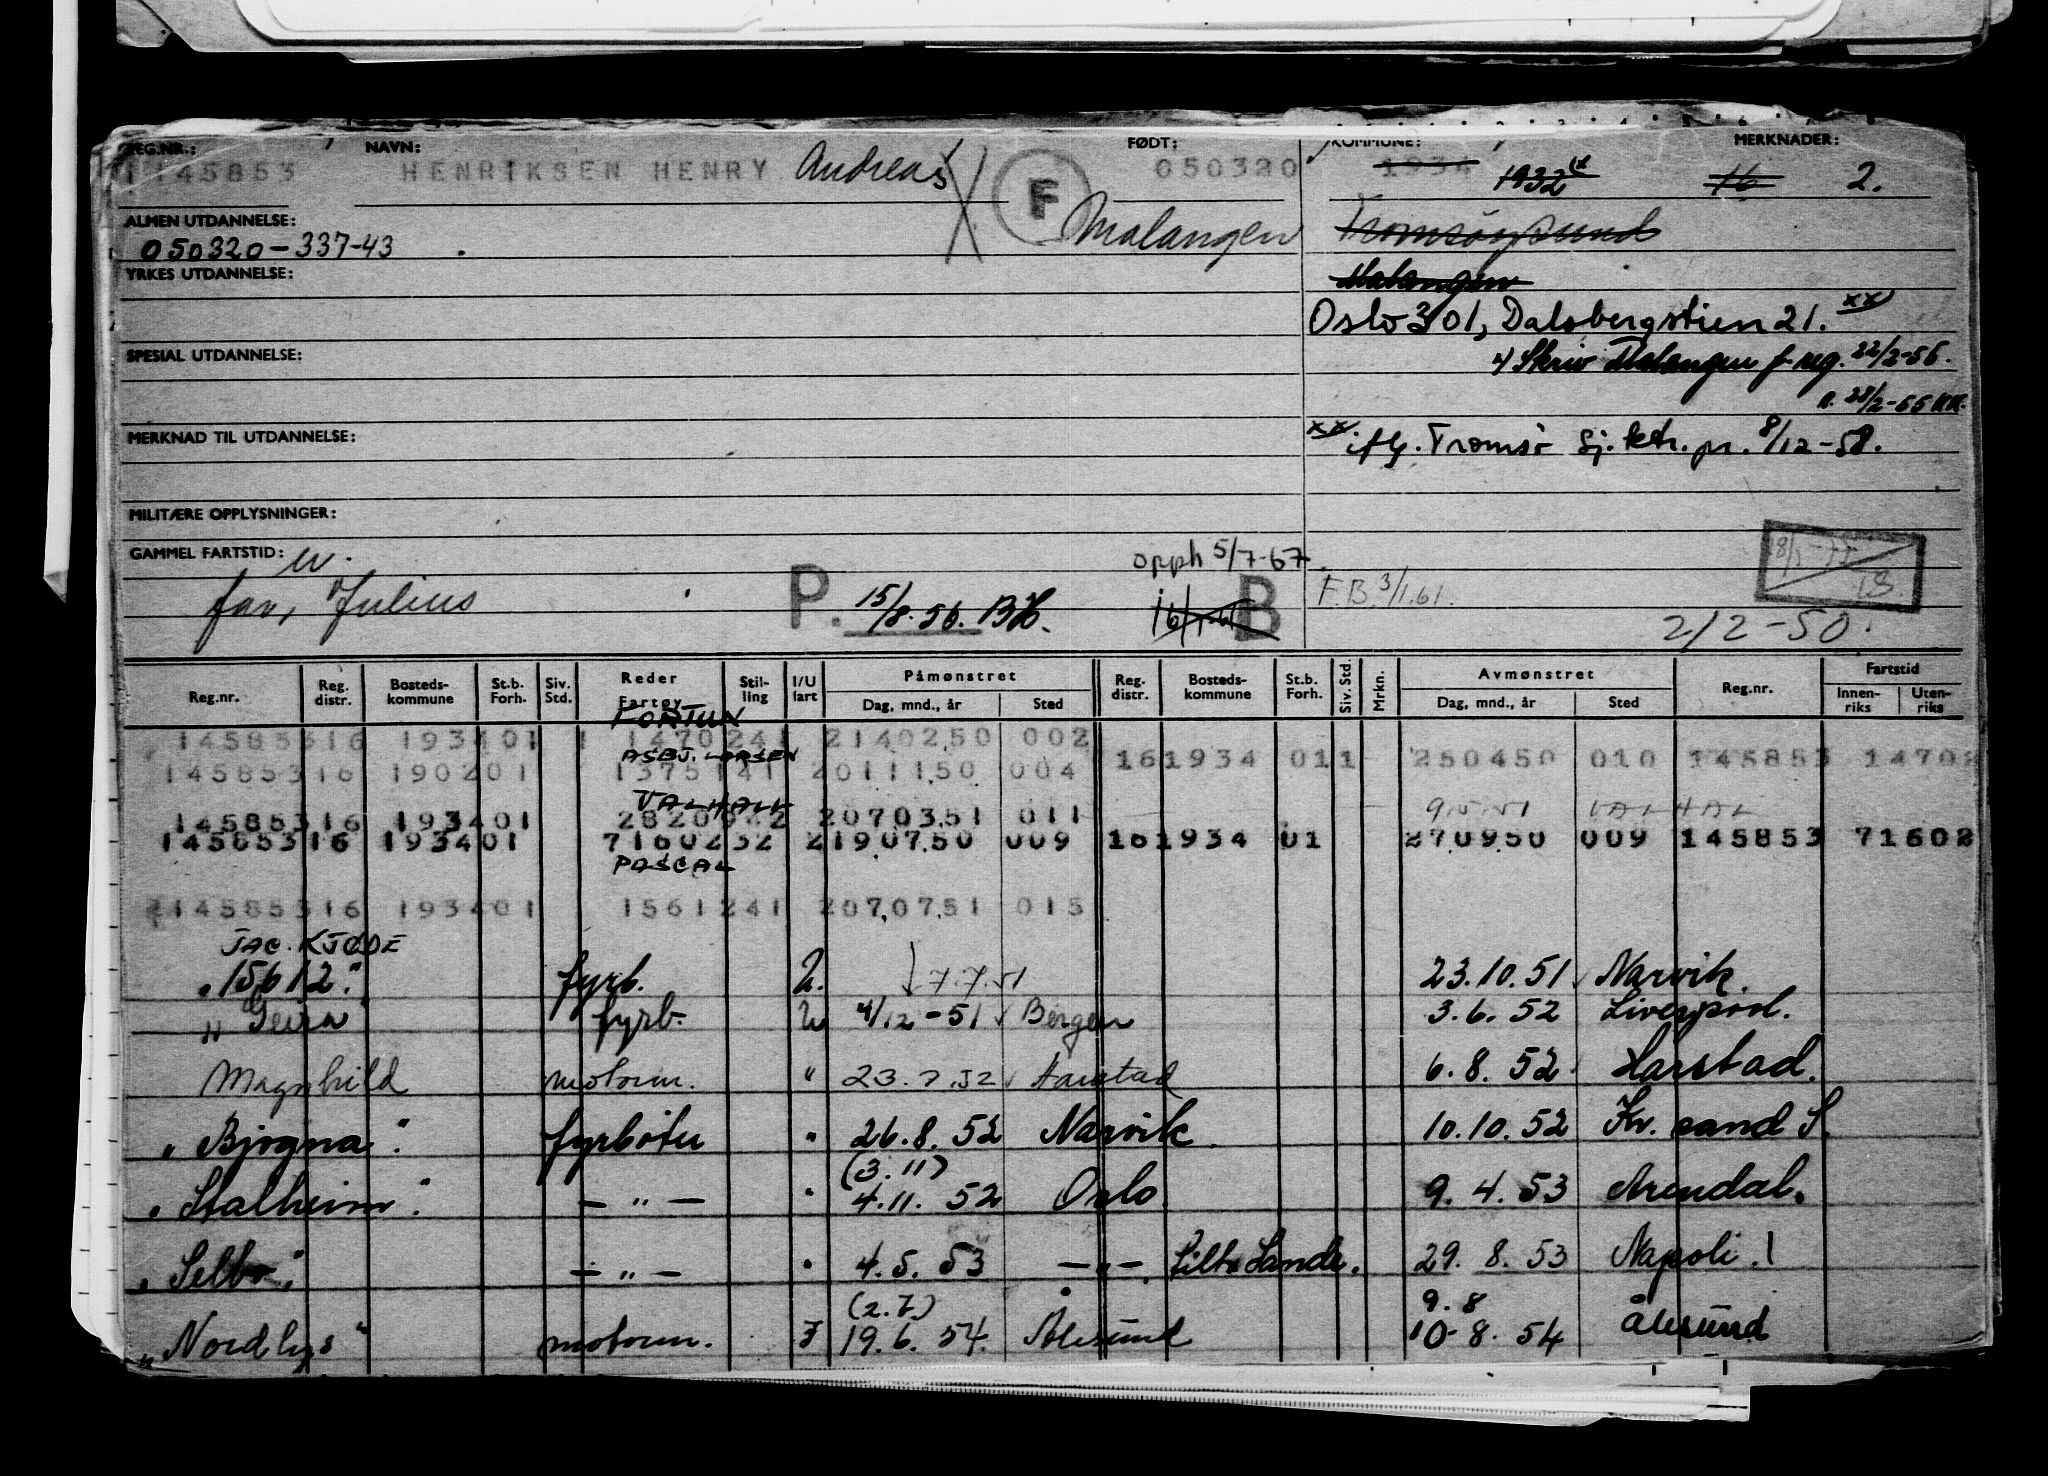 REG.NR.: NAVN: FØDT: KOMMUNE: MERKNADER:
145853 HENRIKSEN HENRY Andreas F 050320 1934 1932 16 2.
ALMEN UTDANNELSE: Malangen Tromsøysund
050320-337-43
YRKES UTDANNELSE: Malangen
Oslo 301, Dalsbergstien 21. xx)
SPESIAL UTDANNELSE: x) Skriv Malangen f-reg. 22/2-56.
28/2-56
MERKNAD TIL UTDANNELSE: xx iflg. Tromsø sj.ktr. pr. 8/12-58.
MILITÆRE OPPLYSNINGER:
GAMMEL FARTSTID: opph 5/7-67
far, Julius P. 15/8.56. BH. B F.B. 3/1.61. 18.
2/2-50.
Reg.nr. Reg. distr. Bosteds- kommune St.b. Forh. Siv. Std. Reder Fartøy Stil- ling I/U fart Påmønstret Dag, mnd., år Sted Reg. distr. Bosteds- kommune St.b. Forh. Siv. Std. Mrkn. Avmønstret Dag, mnd., år Sted Reg.nr. Fartstid Innen- riks Uten- riks
FORTUN
145853 16 1934 01 1 1470 241 2140250 002
ASBJ. LARSEN
161934 011 250450 010 145853 14702
145853 16 1902 01 1375141 2011150 004
VALHALL
9.5.51 VALHAL
145853 16 1934 01 2070351 011
145853 16 1934 01 7160232 2190750 009 161934 01 270950 009 145853 71602
PASCAL
2145853 16 1934 01 1561241 2070751 015
JAC. KJØDE
"15612" fyrb. U. 7.7.51 23.10.51 Narvik.
"Geira" fyrb. U 4/12-51 Bergen 3.6.52 Liverpool.
Magnhild motorm. " 23.7.52 Harstad 6.8.52 Harstad.
"Bjørgna" fyrbøter " 26.8.52 Narvik. 10.10.52 Kr.sand S.
(3.11)
"Stalheim" — " — " 4.11.52 Oslo. 9.4.53 Arendal.
"Selbo" — " — " 4.5.53 — " —. Lista Lande. 29.8.53 Napoli.
(2.7) 9.8
"Nordlys" motorm. I 19.6.54. Ålesund 10-8.54 Ålesund